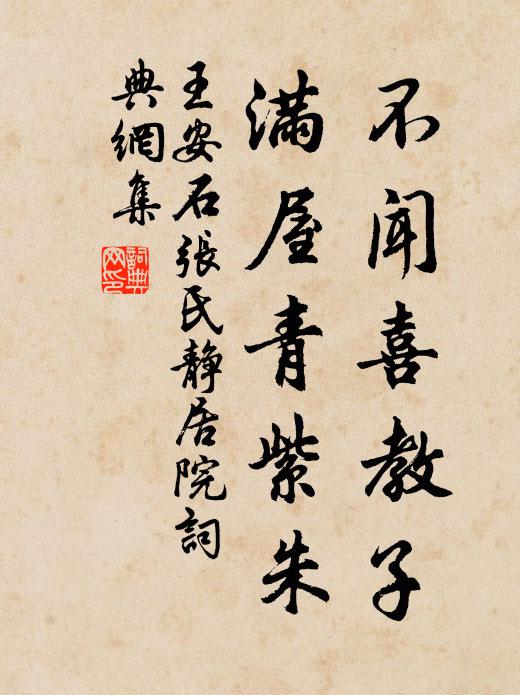 不闻喜教子
满屋青紫朱
王安石張氏静居院詞
典網集
詞典網印